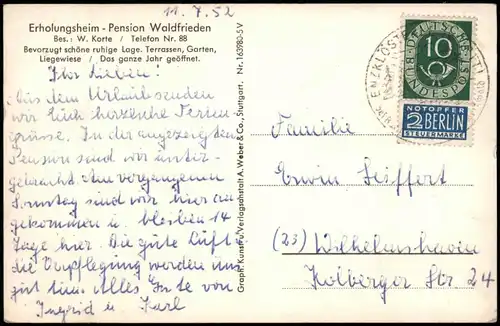 11.7.52
Erholungsheim - Pension Waldfrieden
Bes.: W. Korte / Telefon Nr. 88
Bevorzugt schöne ruhige Lage. Terrassen, Garten,
Liegewiese / Das ganze Jahr geöffnet.
Ihr Lieben!
Aus dem Urlaub senden
wir Euch herzliche Ferien-
grüsse. In der angezeigten
Pension sind wir unter-
gebracht. Am vergangenen
Sonntag sind wir hier an-
gekommen u. bleiben 14
Tage hier. Die gute Luft u
die Verpflegung werden uns
gut tun. Alles Gute von
Ingrid u. Karl
Nr. 16398a-5 V
Graph. Kunst- u. Verlagsanstalt A. Weber & Co., Stuttgart.
ENZKLÖSTERLE
10
DEUTSCHE
BUNDESPOST
NOTOPFER
2 BERLIN
STEUERMARKE
Familie
Erwin Seiffert
(23) Wilhelmshaven
Kolberger Str 24